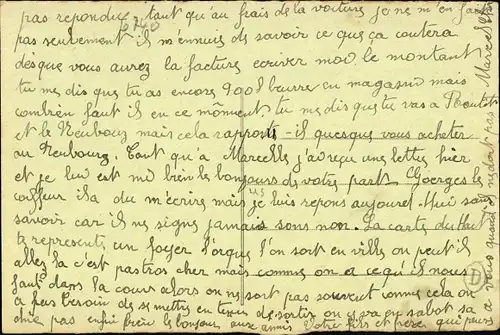 pas repondu, tant qu'au frais de la voiture je ne m'en fais
pas seulement il m'ennuis de savoir ce que ça coutera
des que vous aurez la facture ecriver moi le montant
tu me dis que tu as encore 900 l beurre en magasin mais
combien faut il en ce moment. tu me dis que tu vas a
et le Neubourg mais cela rapporte-il quesque vous acheter
au Neubourg. Tant qu'a Marcelle j'ai reçu une lettre hier
et je lui est mis bien le bonjours de votre part. Georges le
coiffeur il a du m'ecrire mais je luis repons aujourd'hui sans
savoir car il ne signe jamais sons non. La carte du haut
te represente un foyer lorsque l'on sort en ville on peut il
aller la c'est pas tros cher mais comme on a ce qu'il nous
faut dans la cour alors on ne sort pas souvent comme cela on
a pas besoin de se mettre en tenue de sortie on y va en sabot sa
pas enfin bien le bonjour aux amis Votre fils et frere qui pense
a vous Marcel